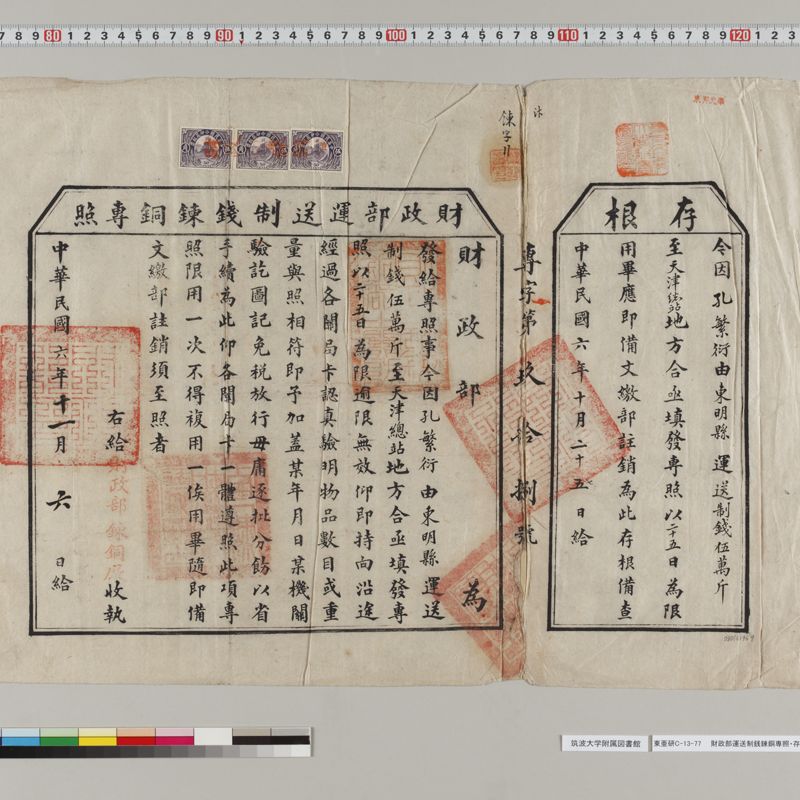 存根
今因孔繁衍由東明縣運送制錢伍萬斤
至天津總站地方合亟填發專照以二十五日為限
用畢應即備文繳部註銷為此存根備查
中華民國六年十月二十五日給
專字第玖拾捌號
財政部運送制錢鍊銅專照
財政部為
發給專照事今因孔繁衍由東明縣運送
制錢伍萬斤至天津總站地方合亟填發專
照以二十五日為限逾限無效仰即持向沿途
經過各關局卡認真驗明物品數目或重
量與照相符即予加蓋某年月日某機關
驗訖圖記免稅放行毋庸逐批分飭以省
手續為此仰各關局卡一體遵照此項專
照限用一次不得複用一俟用畢隨即備
文繳部註銷須至照者
右給財政部鍊銅廠收執
中華民國六年十一月六日給
7 8 9 80 1 2 3 4 5 6 7 8 9 90 1 2 3 4 5 6 7 8 9 100 1 2 3 4 5 6 7 8 9 110 1 2 3 4 5 6 7 8 9 120 1 2 3
筑波大学附属図書館
東亜研C-13-77 財政部運送制銭錬銅専照・存